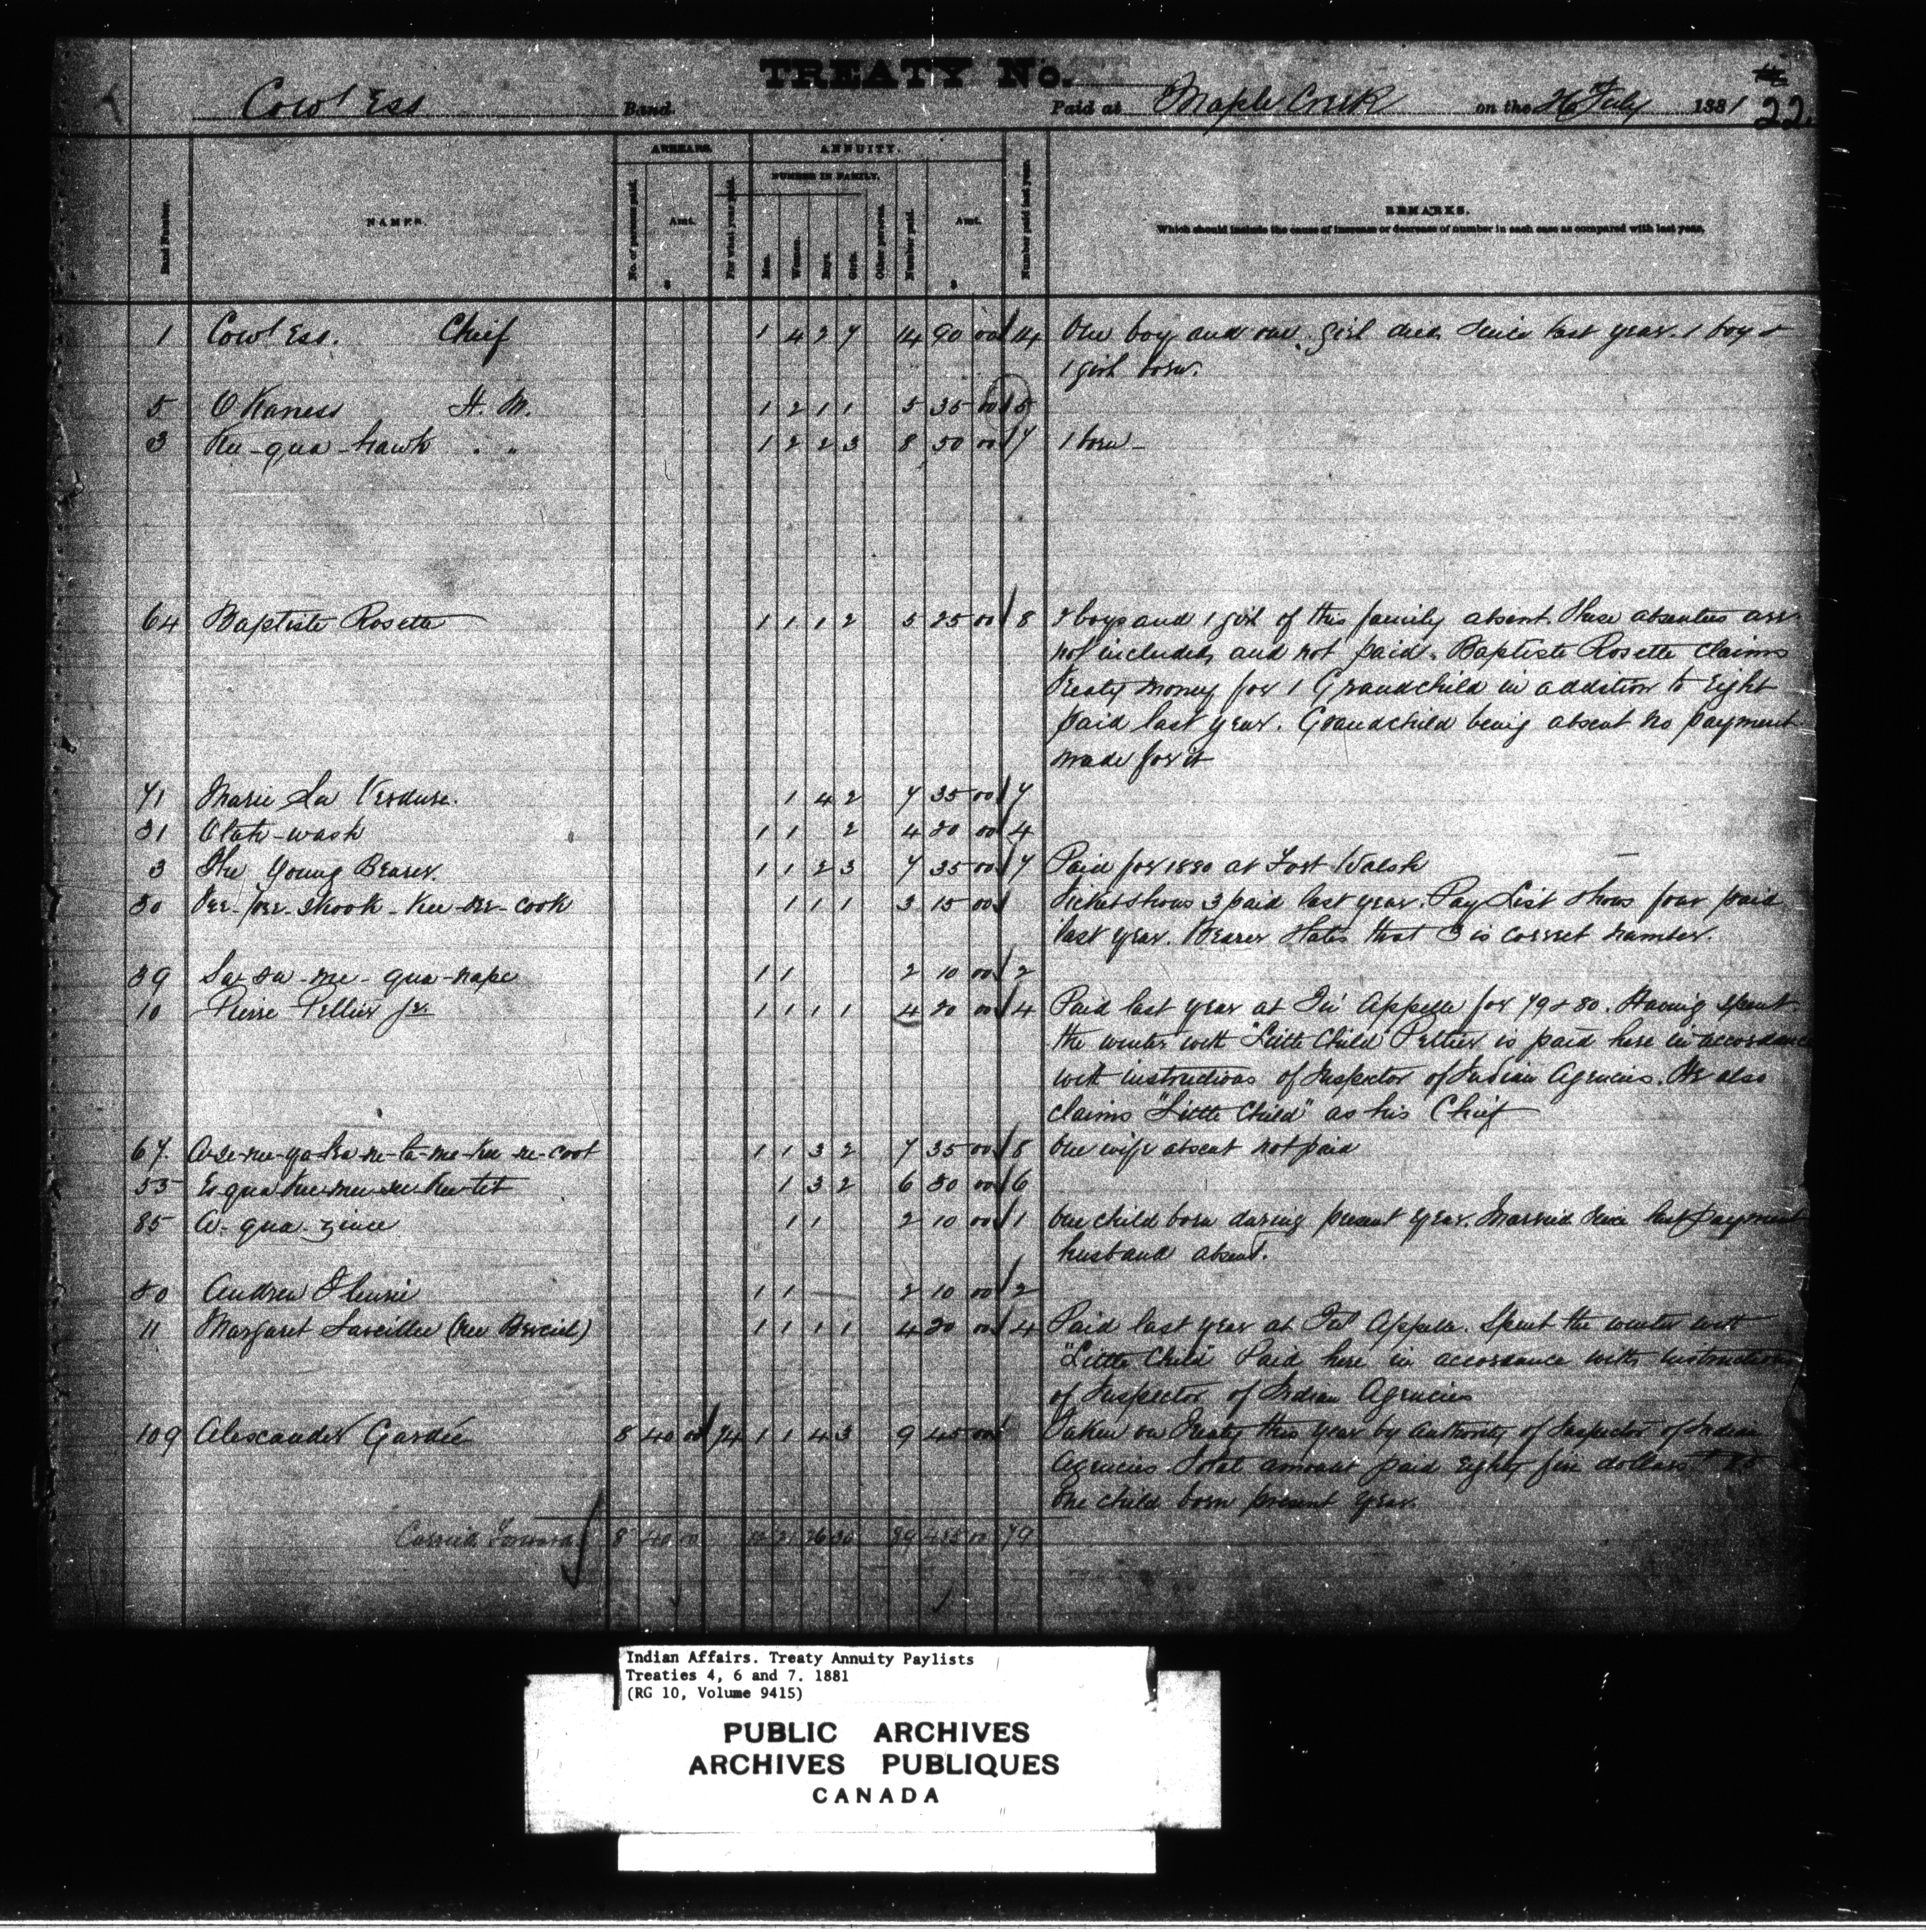 TREATY No.
Cow Ess Band. Paid at Maple Creek on the 26 July 1881 22
ARREARS. ANNUITY.
NUMBER IN FAMILY.
Band Number. NAMES. No. of persons paid. Amt. $ For what year paid. Men. Women. Boys. Girls. Other persons. Number paid. Amt. $ Number paid last year. REMARKS.
Which should include the cause of increase or decrease of number in each case as compared with last year.
1 Cow Ess. Chief 1 4 2 7 14 90 00 14 One boy and one girl died since last year. 1 boy &
1 girl born.
5 O'Kaness H. M. 1 2 1 1 5 35 00 5
3 qua-hawk " " 1 2 2 3 8 50 00 7 1 born
64 Baptiste Rosette 1 1 1 2 5 25 00 8 2 boys and 1 girl of this family absent. These absentees are
not included, and not paid. Baptiste Rosette claims
Treaty money for 1 Grandchild in addition to Eight
paid last year. Grandchild being absent no payment
made for it
71 Marie La Verdure. 1 4 2 7 35 00 7
31 Otah-wash 1 1 2 4 20 00 4
3 The Young Bearer. 1 1 2 3 7 35 00 7 Paid for 1880 at Fort Walsh
50 Pee-pee-skook-kee-see-cook 1 1 1 3 15 00 Ticket shows 3 paid last year. Pay List shows four paid
last year. Bearer states that 3 is correct number.
39 Sa-sa-me-qua-nape 1 1 2 10 00 2
10 Pierre Pellier jr. 1 1 1 1 4 20 00 4 Paid last year at Qu'Appelle for 79 & 80. Having spent
the winter with "Little Child" Peltier is paid here in accordance
with instructions of Inspector of Indian Agencies. He also
claims "Little Child" as his Chief
67. 1 1 3 2 7 35 00 8 One wife absent not paid
55 1 3 2 6 30 00 6
85 A-qua-zince 1 1 2 10 00 1 One child born during present year. Married since last payment
husband absent.
80 Andrew 1 1 2 10 00 2
11 Margaret Laveillee 1 1 1 1 4 20 00 4 Paid last year at Qu'Appelle. Spent the winter with
"Little Child" Paid here in accordance with instructions
of Inspector of Indian Agencies
109 Alexander Gardie 8 40 00 74 1 1 4 3 9 45 00 Taken on Treaty this year by authority of Inspector of Indian
Agencies. Total amount paid Eighty five dollars
One child born present year.
Carried Forward 8 40 00 12 21 26 30 89 485 00 79
Indian Affairs. Treaty Annuity Paylists
Treaties 4, 6 and 7. 1881
(RG 10, Volume 9415)
PUBLIC ARCHIVES
ARCHIVES PUBLIQUES
CANADA